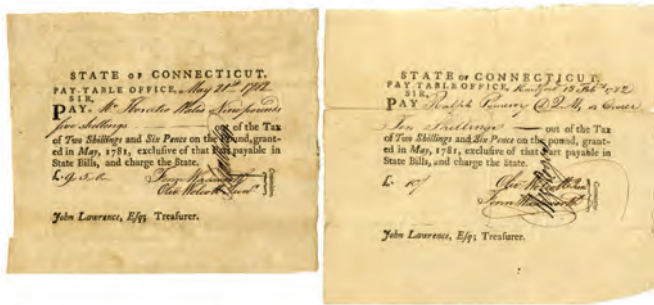 STATE OF CONNECTICUT.
PAY-TABLE OFFICE, May 21st 1782
SIR,
PAY Mr Horatio Wales Nine pounds
five shillings out of the Tax
of Two Shillings and Six Pence on the Pound, grant-
ed in May, 1781, exclusive of that Part payable in
State Bills, and charge the State.
£. 9. 5.
Oliv Wolcott Junr
Committee.
John Lawrence, Esq; Treasurer.
STATE OF CONNECTICUT.
PAY-TABLE OFFICE, Hartford 15 Feby 1782
SIR,
PAY Ralph Pomeroy D Q M, or Order
Ten Shillings out of the Tax
of Two Shillings and Six Pence on the pound, grant-
ed in May, 1781, exclusive of that Part payable in
State Bills, and charge the State.
£. 10/
Oliv Wolcott Junr
Committee.
John Lawrence, Esq; Treasurer.